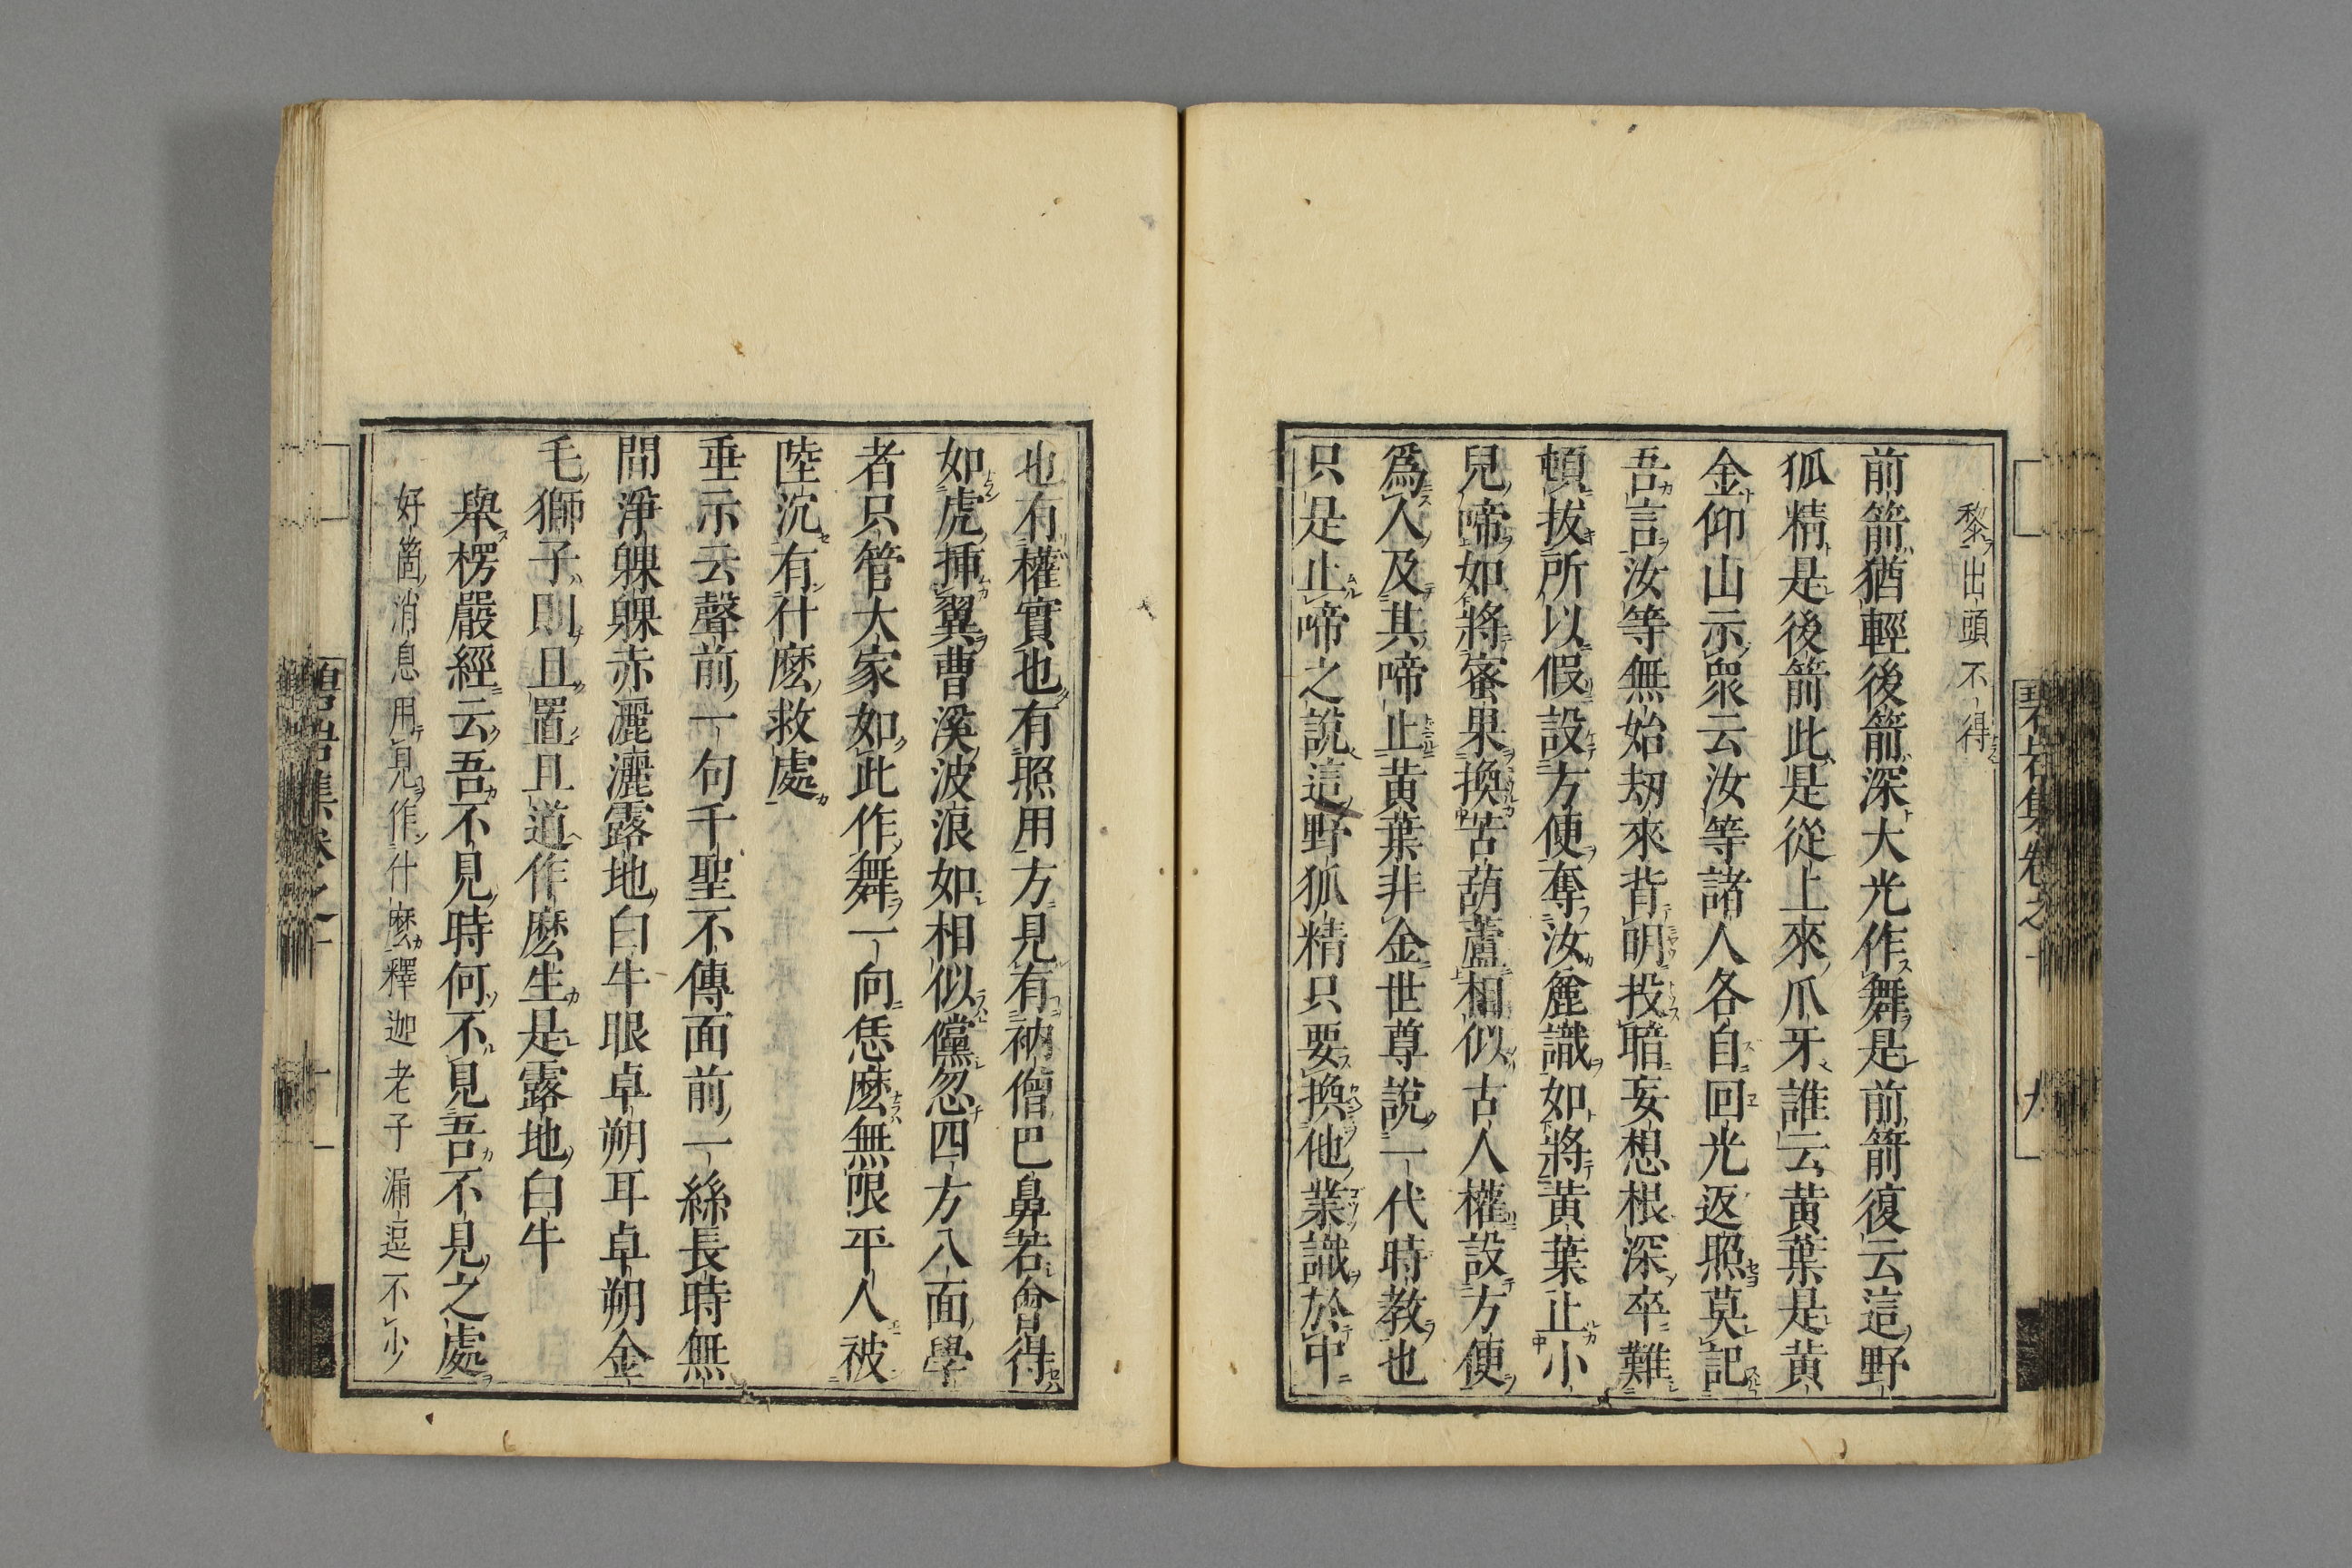 黎出頭不得
前箭猶輕後箭深大光作舞是前箭復云這野
狐精是後箭此是從上來爪牙誰云黄葉是黄
金仰山示衆云汝等諸人各自回光返照莫記
吾言汝等無始劫來背明投暗妄想根深卒難
頓拔所以假設方便奪汝麁識如將黄葉止小
兒啼如將蜜果換苦葫蘆相似古人權設方便
爲人及其啼止黄葉非金世尊說一代時教也
只是止啼之說這野狐精只要換他業識於中
碧岩集卷之十
九
也有權實也有照用方見有衲僧巴鼻若會得
如虎揷翼曹溪波浪如相似儻忽四方八面學
者只管大家如此作舞一向恁麽無限平人被
陸沉有什麽救處
垂示云聲前一句千聖不傳面前一絲長時無
間淨躶躶赤灑灑露地白牛眼卓朔耳卓朔金
毛獅子則且置且道作麽生是露地白牛
擧楞嚴經云吾不見時何不見吾不見之處
好箇消息用見作什麽釋迦老子漏逗不少
碧岩集卷之十